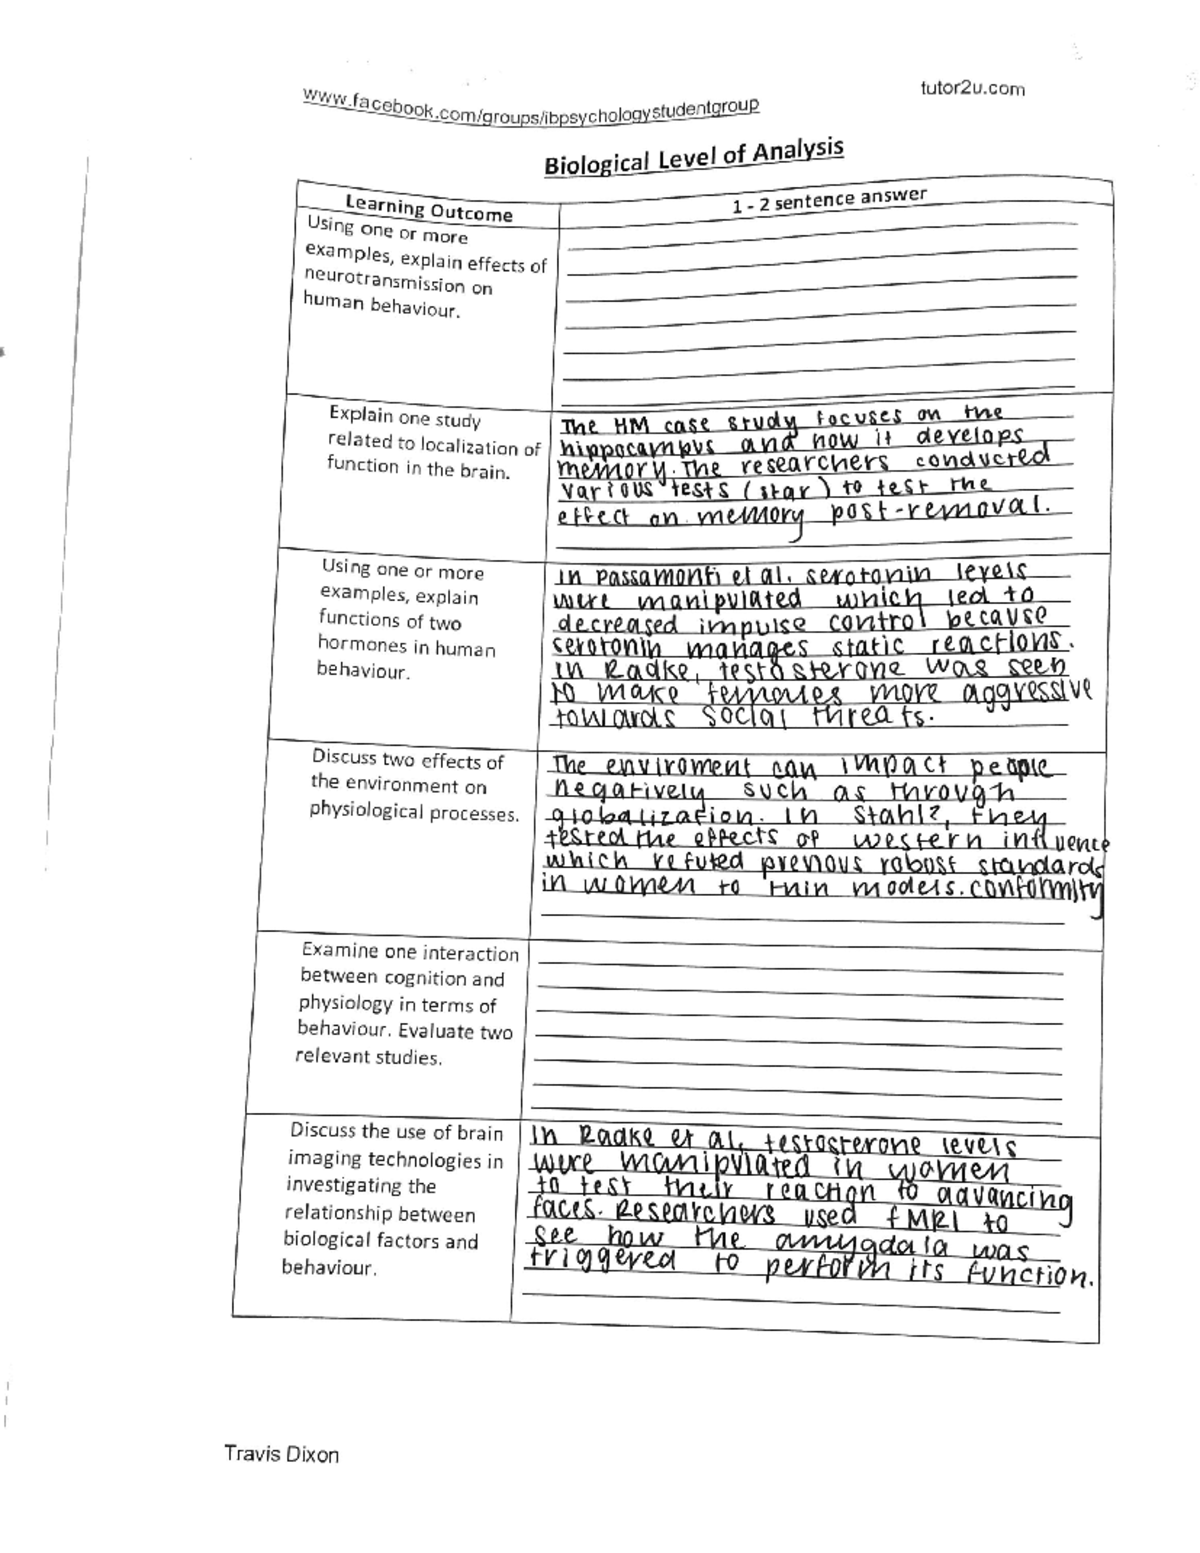 www.facebook.com/groups/ibpsychologystudentgroup
tutor2u.com
Biological Level of Analysis
Learning Outcome
1 - 2 sentence answer
Using one or more
examples, explain effects of
neurotransmission on
human behaviour.
Explain one study
related to localization of
function in the brain.
The HM case study focuses on the
hippocampus and how it develops
memory. The researchers conducted
various tests (star) to test the
effect on memory post-removal.
Using one or more
examples, explain
functions of two
hormones in human
behaviour.
In Passamonti et al. serotonin levels
were manipulated which led to
decreased impulse control because
serotonin manages static reactions.
In Radke, testosterone was seen
to make females more aggressive
towards social threats.
Discuss two effects of
the environment on
physiological processes.
The enviroment can impact people
negatively such as through
globalization. In Stahl?, they
tested the effects of western influence
which refuted previous robust standards
in women to thin models. conformity
Examine one interaction
between cognition and
physiology in terms of
behaviour. Evaluate two
relevant studies.
Discuss the use of brain
imaging technologies in
investigating the
relationship between
biological factors and
behaviour.
In Radke et al, testosterone levels
were manipulated in women
to test their reaction to advancing
faces. Researchers used fMRI to
see how the amygdala was
triggered to perform its function.
Travis Dixon